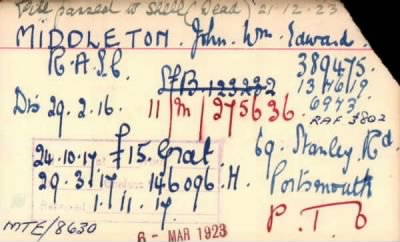 File passed to Shell (Dead) 21.12.23
MIDDLETON. John. Wm. Edward.
R.A.S.C. 389475.
SfB 123232 13/46/19
Dis 29.2.16. 11/M/275636. 6973
RAF 3802
24.10.17 £15. Grat 69. Stanley Rd.
29.3.17 146096.H. Portsmouth
1.11.17.
P.T.O
MTE/8630 6 - MAR 1923